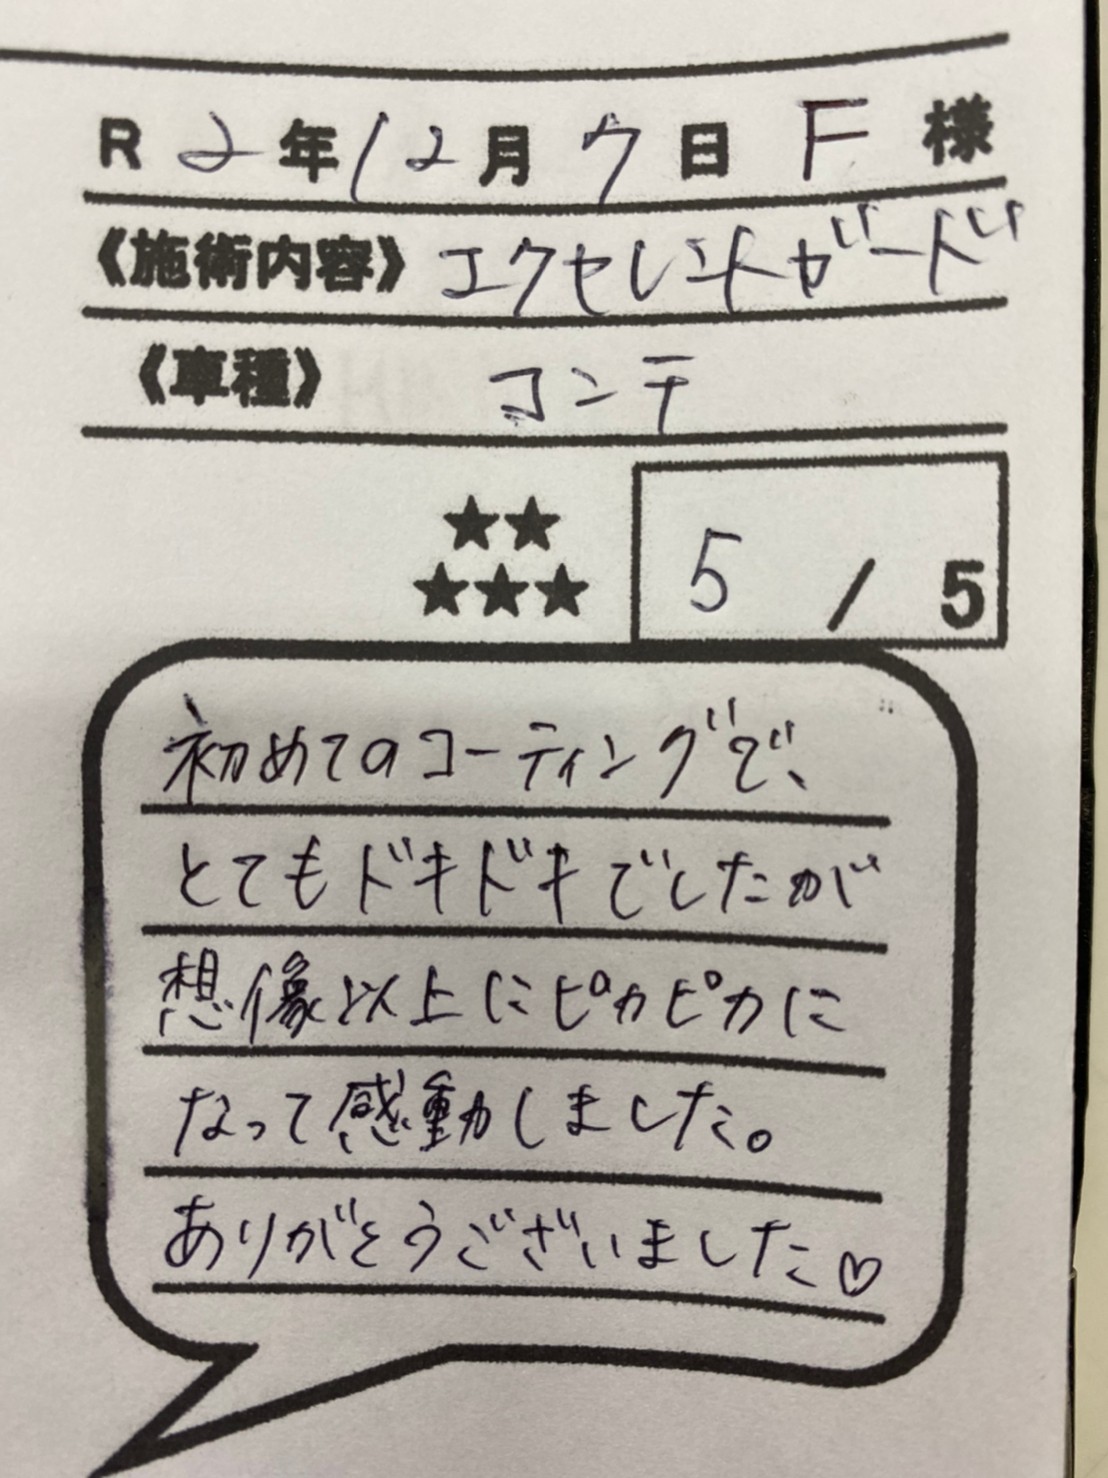 R 2年12月7日 F 様
《施術内容》エクセレントガード
《車種》 コンテ
★★
★★★
5 / 5
初めてのコーティングで、
とてもドキドキでしたが
想像以上にピカピカに
なって感動しました。
ありがとうございました♡